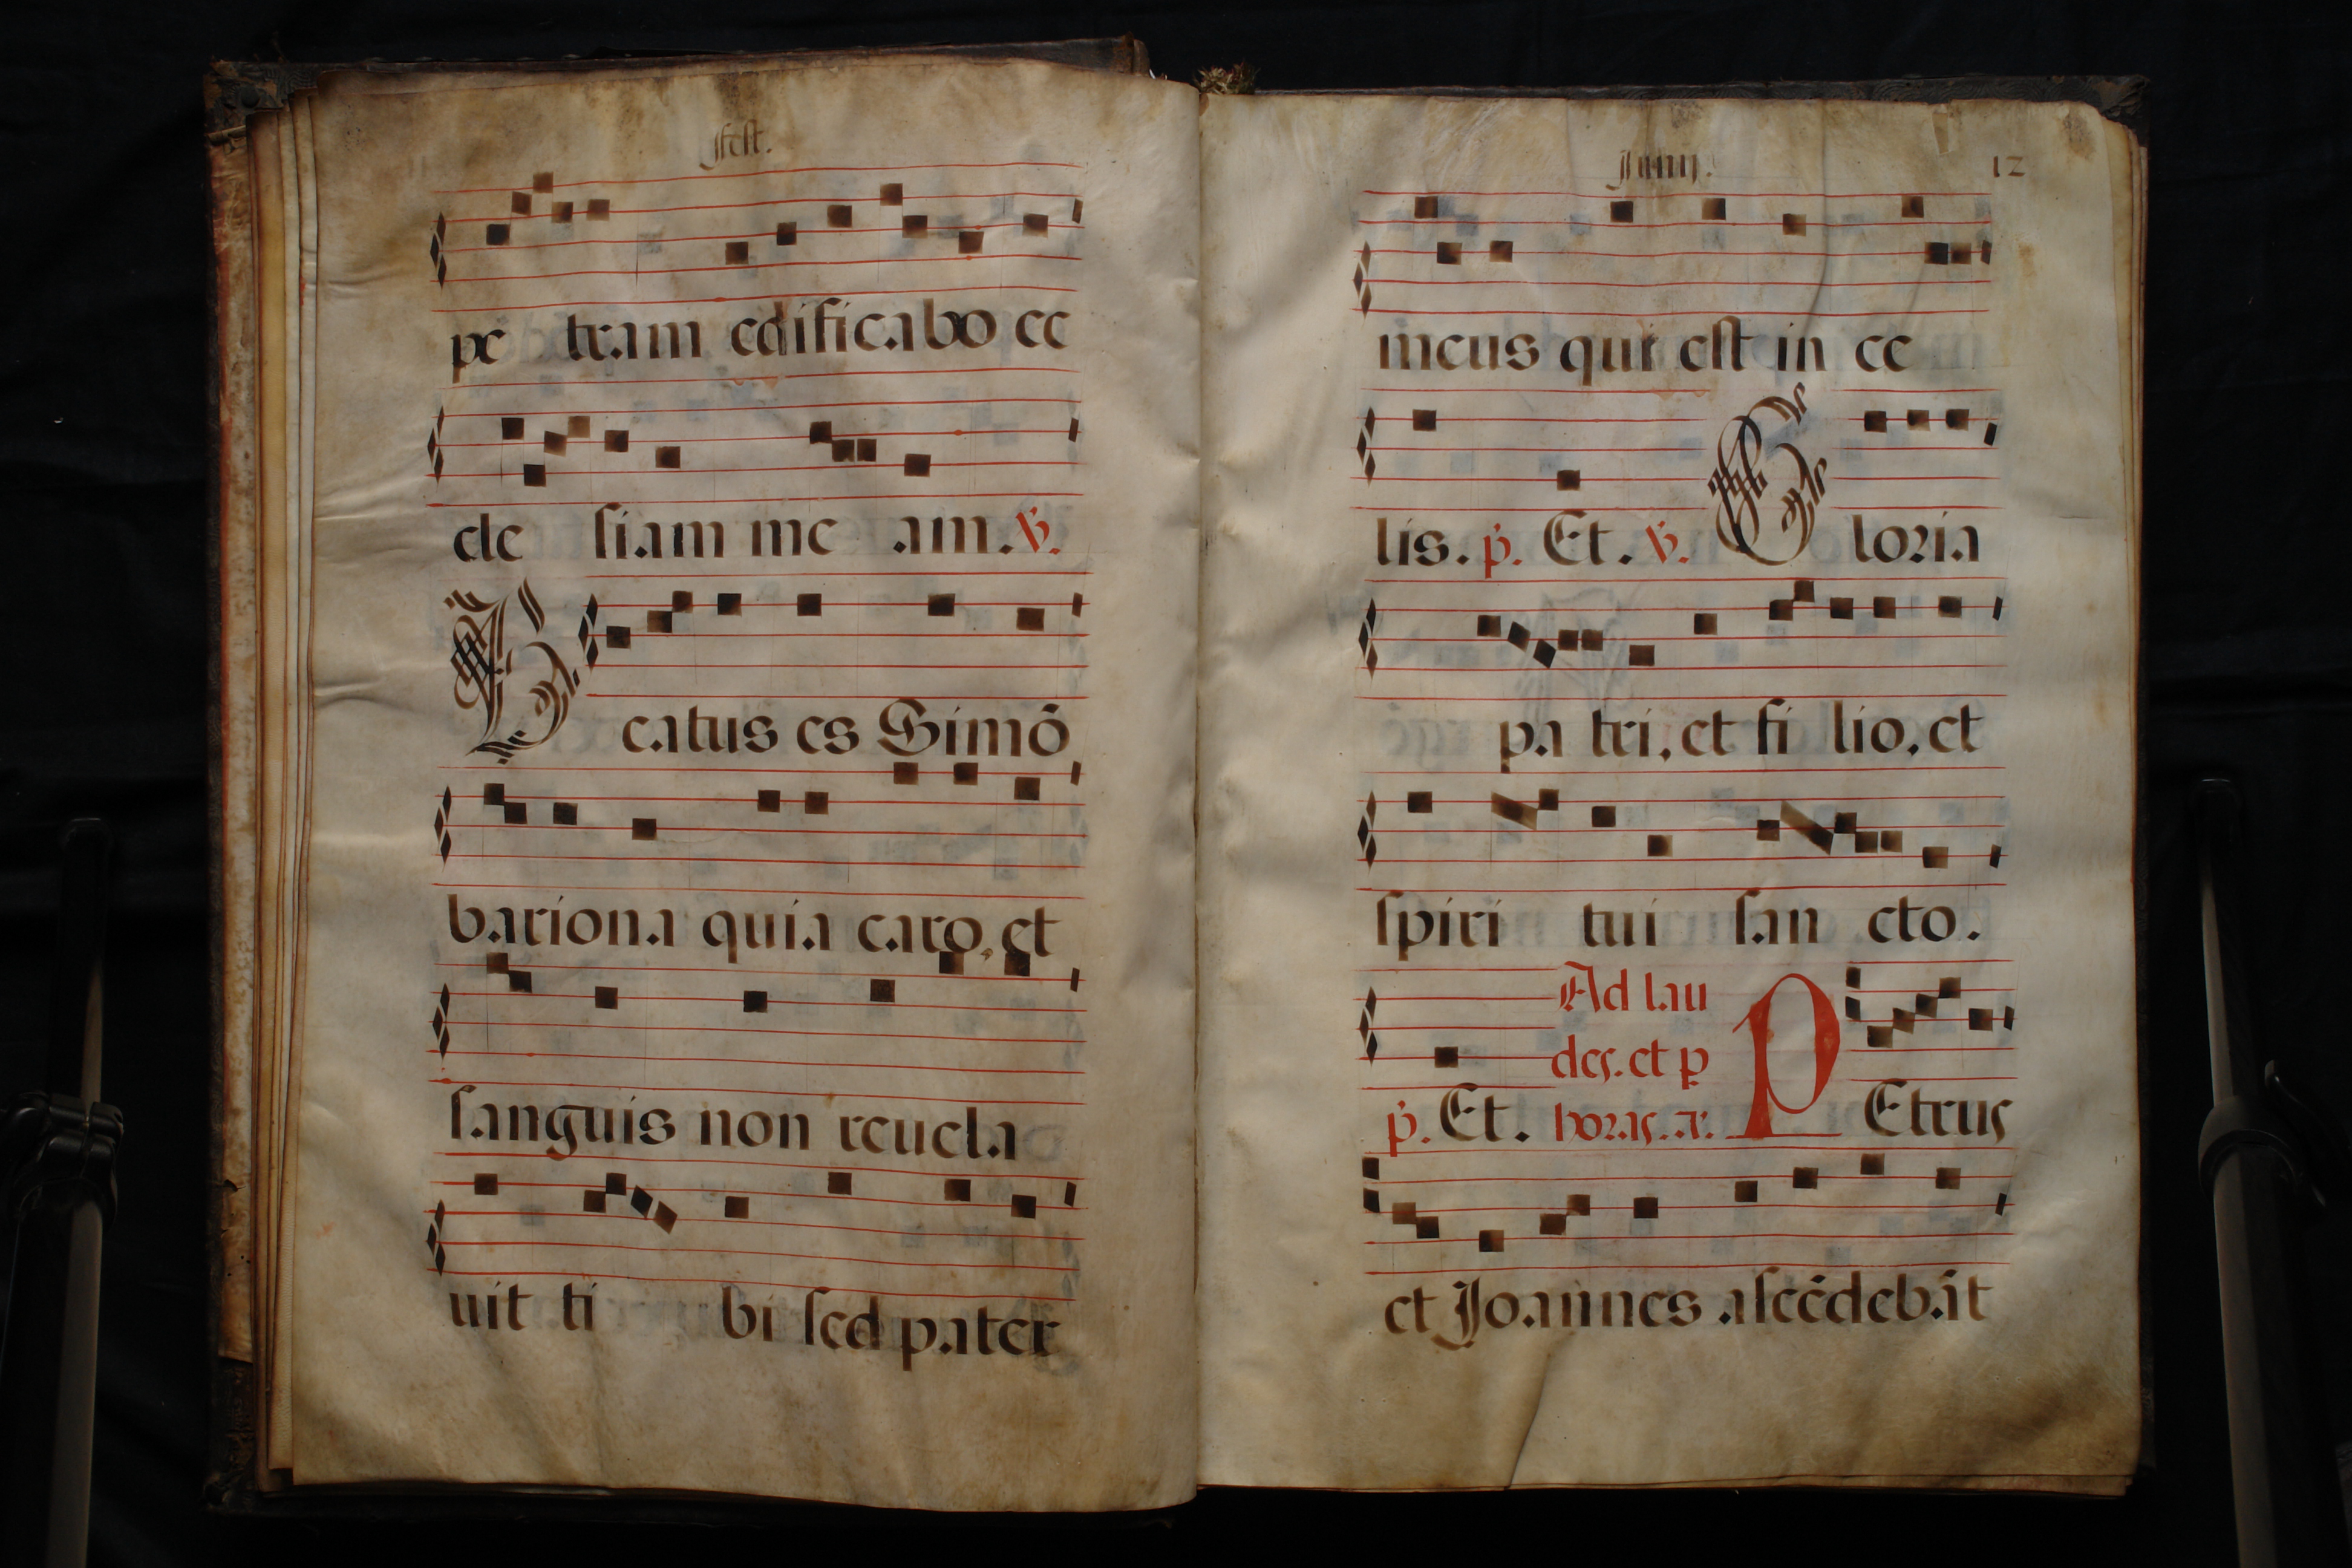 fest.
pe tram edificabo ec
cle siam me am. V.
Beatus es Simō
bariona quia caro, et
sanguis non reuela
uit ti bi sed pater
Junij. 12
meus qui est in ce
lis. p. Et. V. Gloria
pa tri, et fi lio, et
spiri tui san cto.
Ad lau
des. et p
p. Et. horas. a. PEtrus
et Joannes ascēdebāt